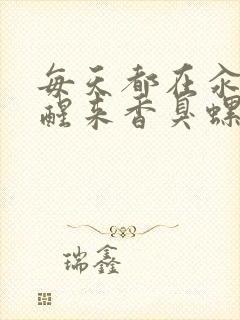 每天都在
醒来香臭螺
瑞鑫